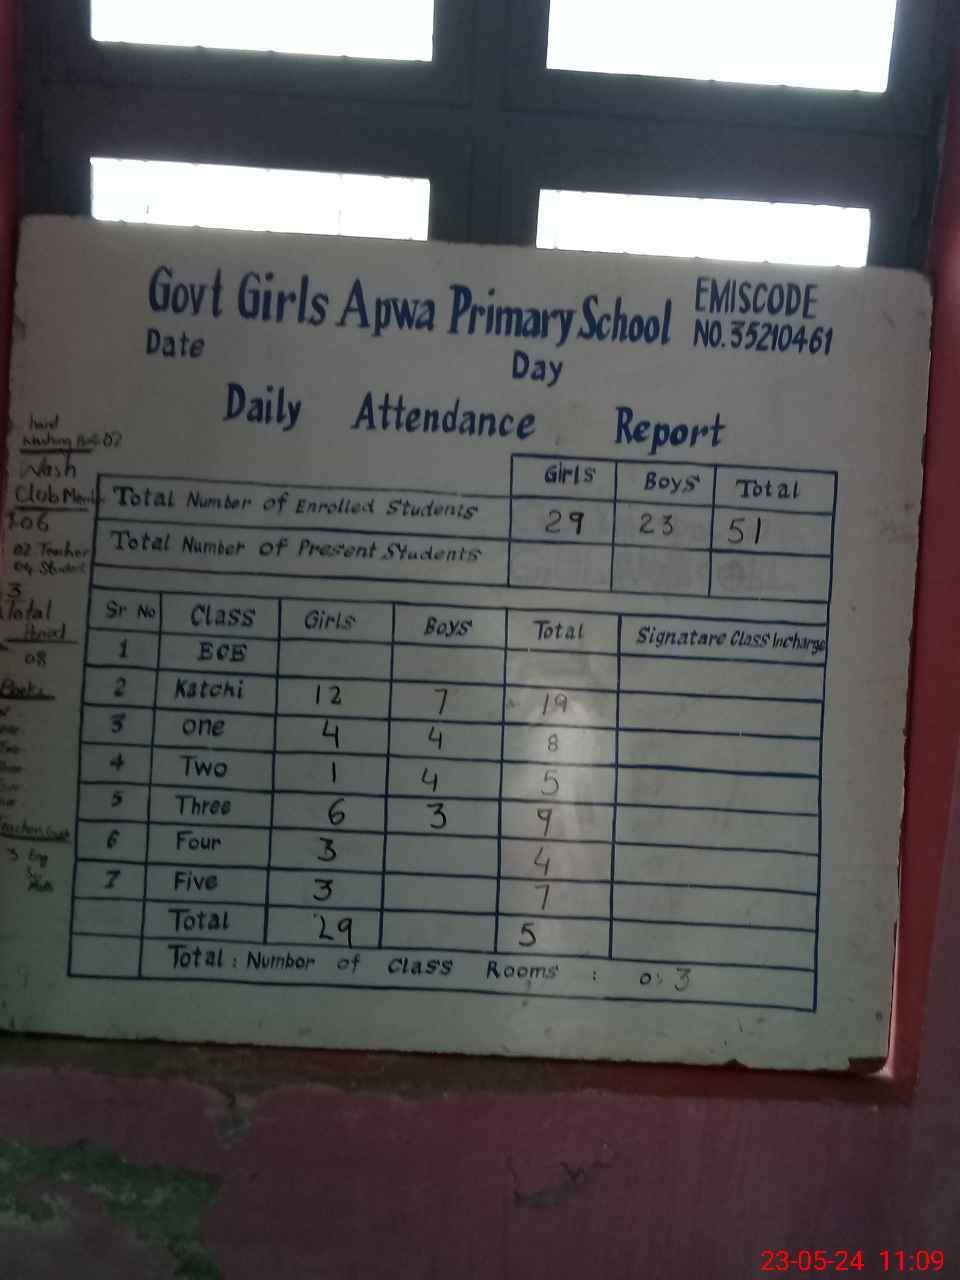 Govt Girls Apwa Primary School EMISCODE
NO. 35210461
Date Day
Daily Attendance Report
Girls Boys Total
Total Number of Enrolled Students 29 23 51
Total Number of Present Students
Sr No Class Girls Boys Total Signatare Class Incharge
1 ECE
2 Katchi 12 7 19
3 one 4 4 8
4 Two 1 4 5
5 Three 6 3 9
6 Four 3 4
7 Five 3 7
Total 29 5
Total : Number of Class Rooms : 0: 3
hand
Washing 02
Wash
Club
06
02 Teacher
04 Student
3
Total
Period
08
Books
3 Eng
23-05-24 11:09